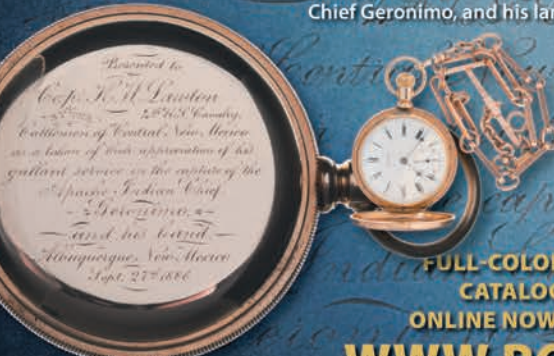 Chief Geronimo, and his lar
Presented to
Cap. H. W. Lawton
4th U.S. Cavalry,
Citizens of Central New Mexico
as a token of their appreciation of his
gallant service in the capture of the
Apache Indian Chief
Geronimo,
and his band
Albuquerque New Mexico
Sept. 27th 1886
FULL-COLOR
CATALOG
ONLINE NOW
WWW.